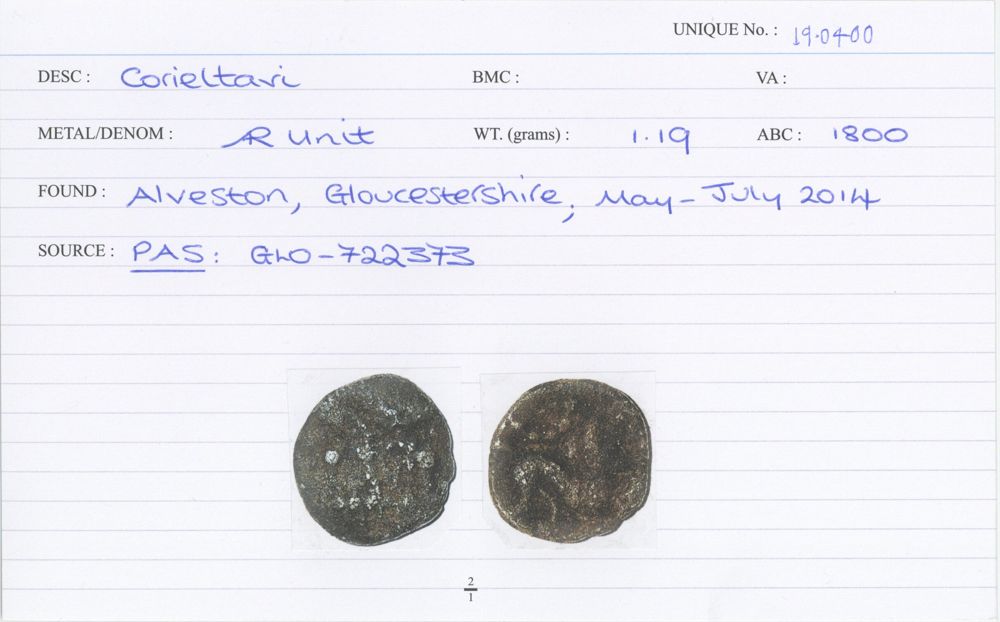 UNIQUE No. : 19.04.00
DESC : Corieltavi BMC : VA :
METAL/DENOM : AR Unit WT. (grams) : 1.19 ABC : 1800
FOUND : Alveston, Gloucestershire, May - July 2014
SOURCE : PAS: GLO-722373
2
1